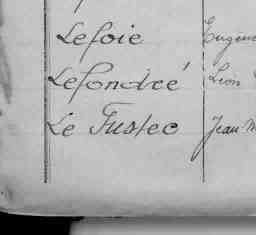 Lefoie Eugene
Lefondré Léon
Le Fustec Jean M